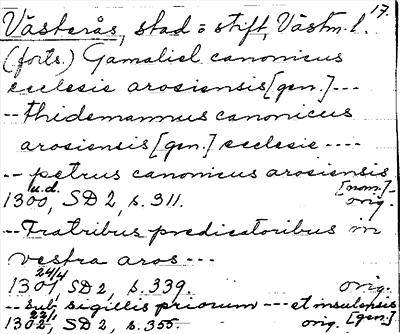 17.
Västerås, stad o stift, Västm. l.
(forts.) Gamaliel canonicus
ecclesie arosiensis [gen.] ---
-- thidemannus canonicus
arosiensis [gen.] ecclesie ----
-- petrus canonicus arosiensis
u.d. [nom.] -
1300, SD 2, s. 311. orig.
-- Fratribus predicatoribus in
vestra aros ---
24/4
1301, SD 2, s. 339. orig.
-- sub sigillis priorum --- et insulensis
22/1 [gen.]
1302, SD 2, s. 355. orig.